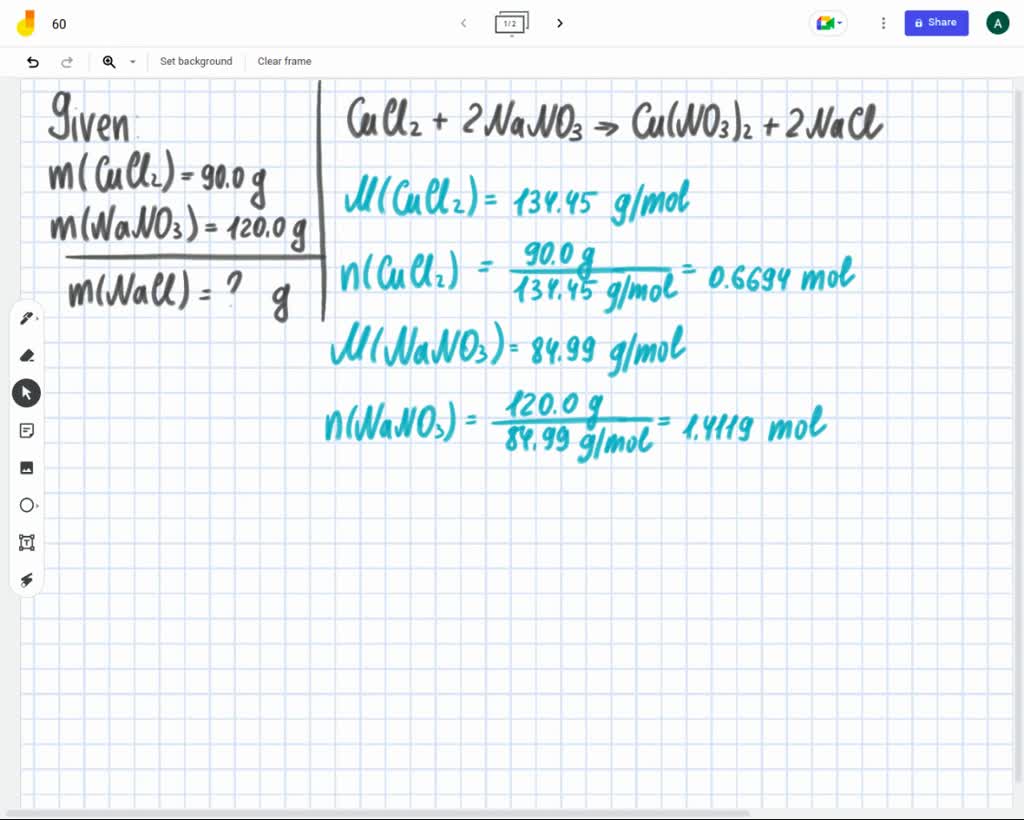 60
1/2
Share
A
Set background
Clear frame
Given:
m(CuCl₂) = 90.0 g
m(NaNO₃) = 120.0 g
m(NaCl) = ? g
CuCl₂ + 2NaNO₃ → Cu(NO₃)₂ + 2NaCl
M(CuCl₂) = 134.45 g/mol
n(CuCl₂) = 90.0 g / 134.45 g/mol = 0.6694 mol
M(NaNO₃) = 84.99 g/mol
n(NaNO₃) = 120.0 g / 84.99 g/mol = 1.4119 mol